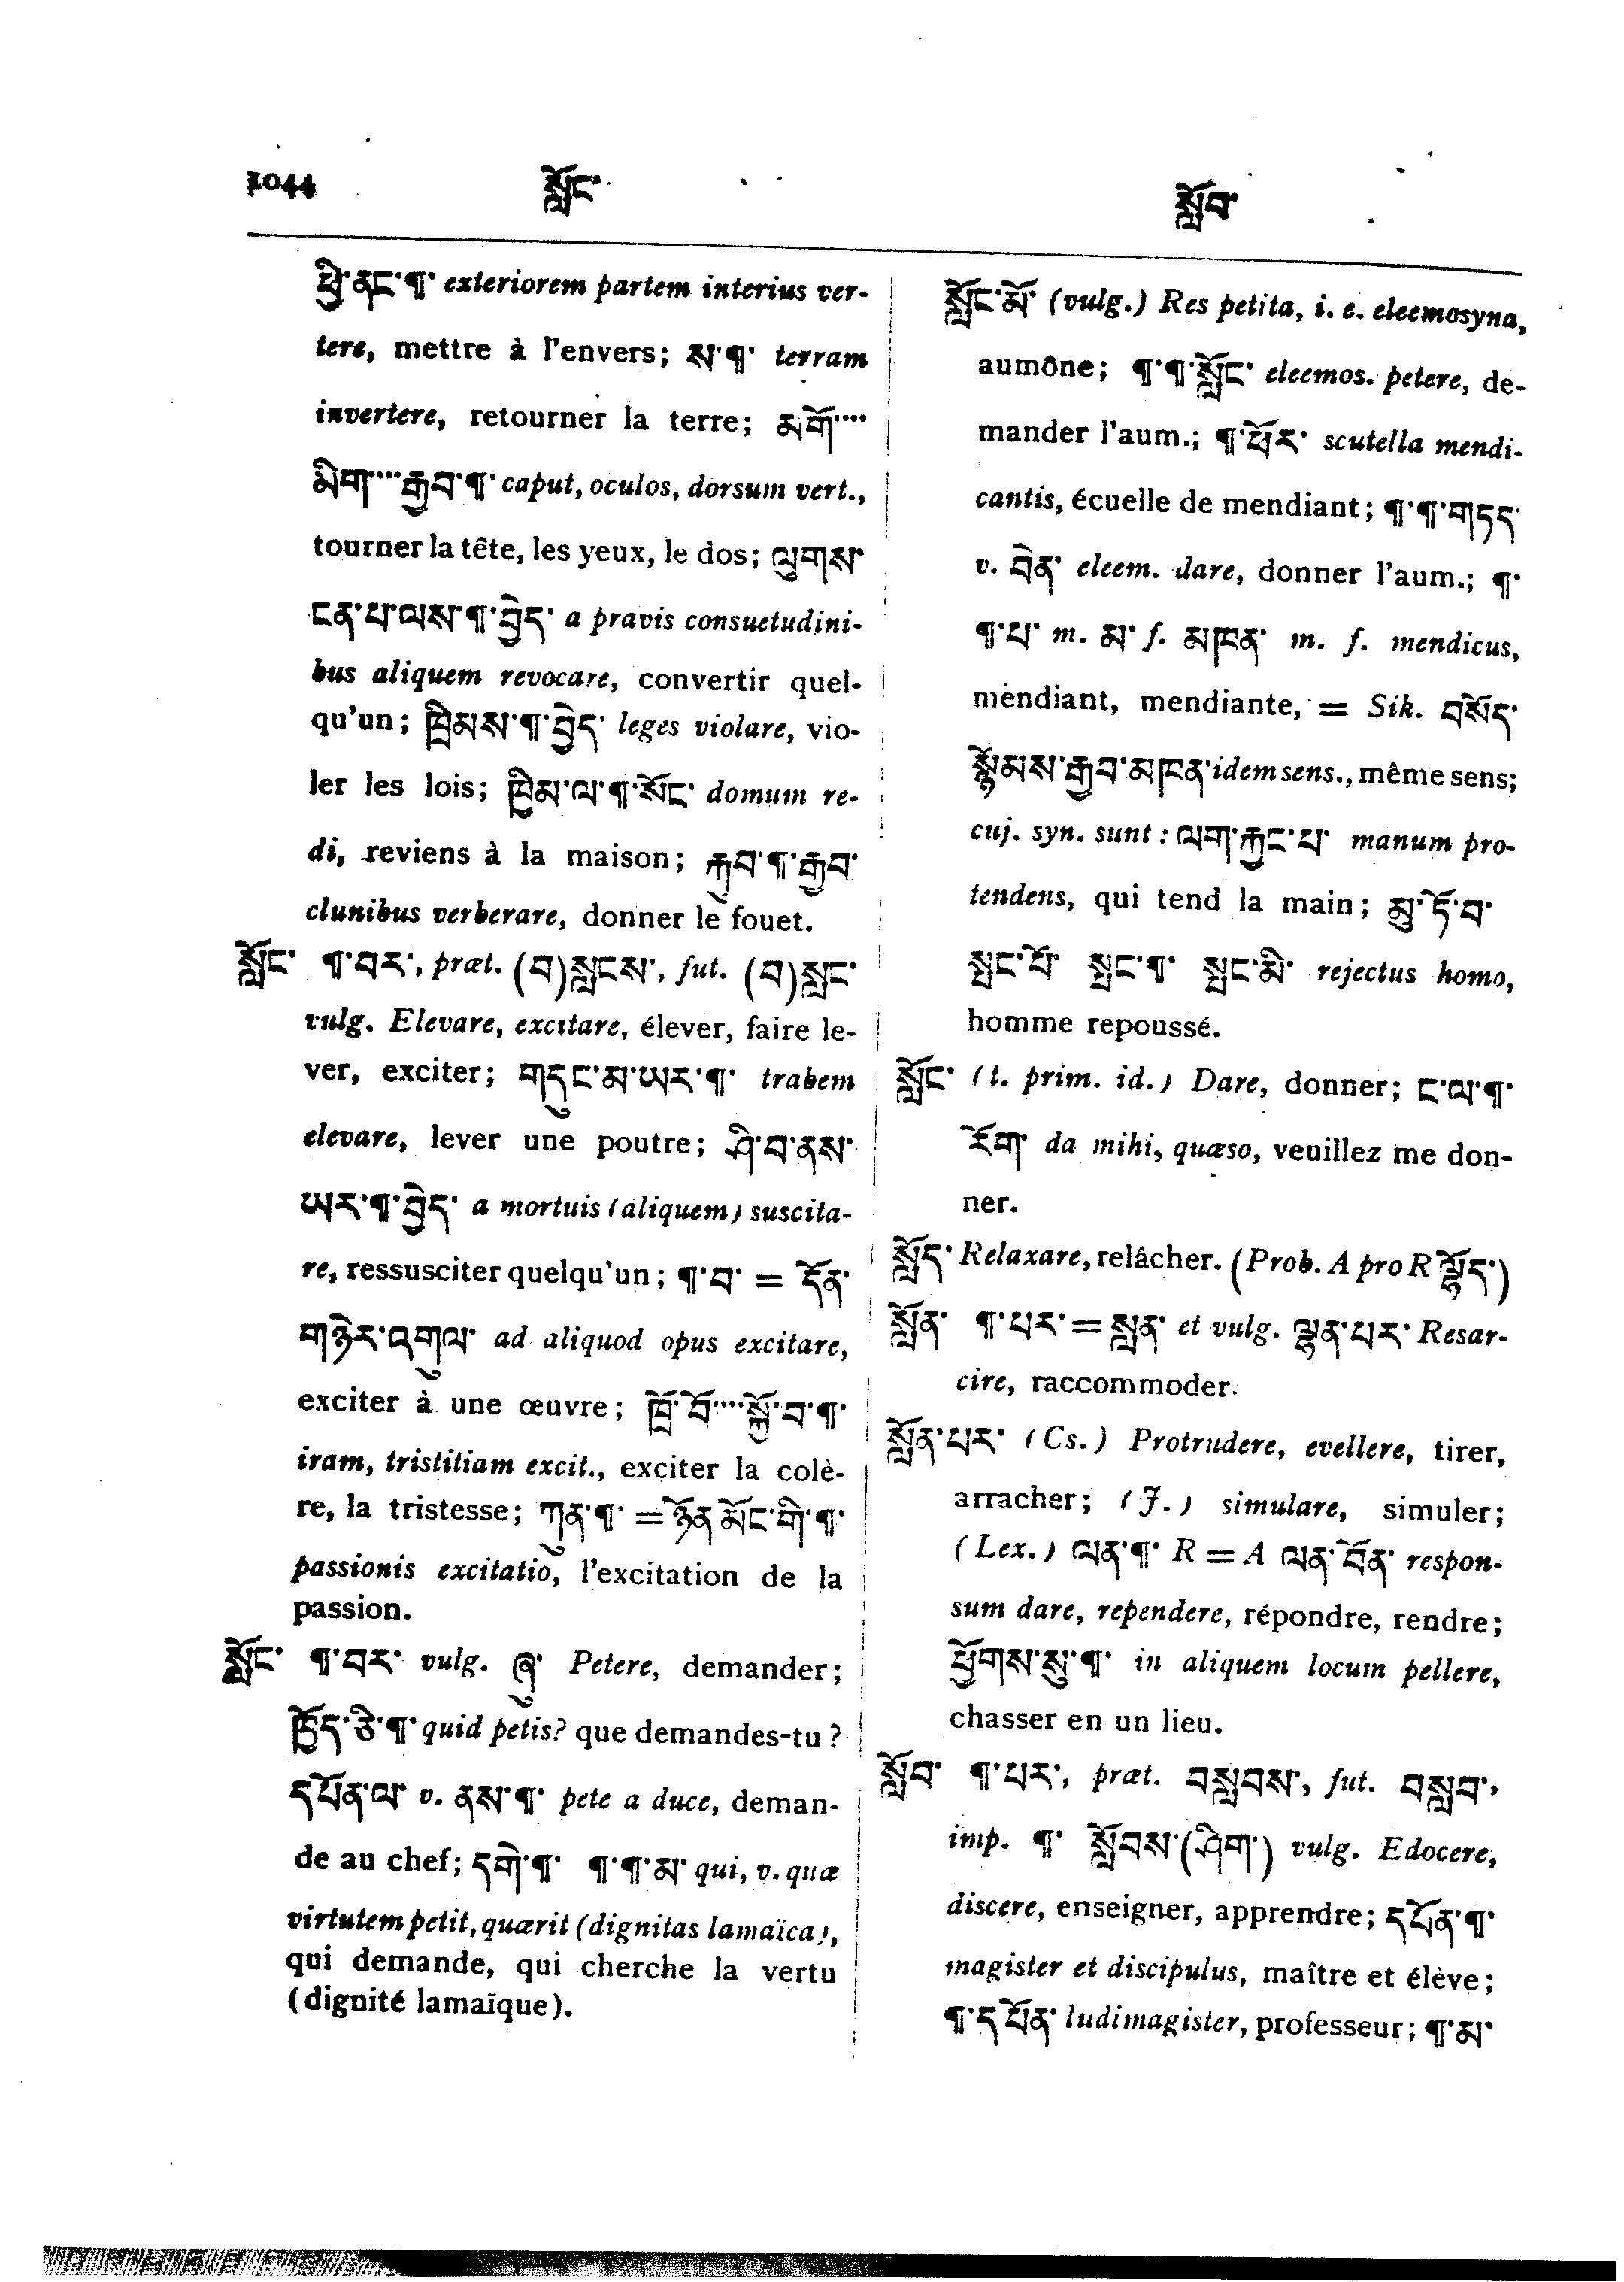 1044 སློང་ སློབ་
ཕྱི་ནང་¶་ exteriorem partem interius ver-
tere, mettre à l'envers; ས་¶་ terram
invertere, retourner la terre; མགོ་····
མིག་····རྒྱབ་¶་ caput, oculos, dorsum vert.,
tourner la tête, les yeux, le dos; ལུགས་
ངན་པ་ལས་¶་བྱེད་ a pravis consuetudini-
bus aliquem revocare, convertir quel-
qu'un; ཁྲིམས་¶་བྱེད་ leges violare, vio-
ler les lois; ཁྱིམ་ལ་¶་སོང་ domum re-
di, reviens à la maison; རྐུབ་¶་རྒྱབ་
clunibus verberare, donner le fouet.
སློང་ ¶་བར་, præt. (བ)སླངས་, fut. (བ)སླང་
vulg. Elevare, excitare, élever, faire le-
ver, exciter; གདུང་མ་ཡར་¶་ trabem
elevare, lever une poutre; ཤི་བ་ནས་
ཡར་¶་བྱེད་ a mortuis (aliquem) suscita-
re, ressusciter quelqu'un; ¶་བ་ = དོན་
གཉེར་འགུལ་ ad aliquod opus excitare,
exciter à une œuvre; ཁྲོ་བོ་····སྐྱོ་བ་¶་
iram, tristitiam excit., exciter la colè-
re, la tristesse; ཀུན་¶་ = ཉོན་མོང་གི་¶་
passionis excitatio, l'excitation de la
passion.
སློང་ ¶་བར་ vulg. ཞུ་ Petere, demander;
ཁྱོད་ཅི་¶་ quid petis? que demandes-tu ?
དཔོན་ལ་ v. ནས་¶་ pete a duce, deman-
de au chef; དགེ་¶་ ¶་¶་མ་ qui, v. quæ
virtutem petit, quærit (dignitas lamaïca),
qui demande, qui cherche la vertu
(dignité lamaïque).
སློང་མོ་ (vulg.) Res petita, i. e. eleemosyna,
aumône; ¶་¶་སློང་ eleemos. petere, de-
mander l'aum.; ¶་ཕོར་ scutella mendi-
cantis, écuelle de mendiant; ¶་¶་གཏད་
v. བྲེན་ eleem. dare, donner l'aum.; ¶་
¶་པ་ m. མ་ f. མཁན་ m. f. mendicus,
mendiant, mendiante, = Sik. བསོད་
སྙོམས་རྒྱབ་མཁན་ idem sens., même sens;
cuj. syn. sunt: ལག་རྐྱང་པ་ manum pro-
tendens, qui tend la main; མུ་ཏོ་བ་
སྤང་པོ་ སྤང་¶་ སྤང་མི་ rejectus homo,
homme repoussé.
སློང་ (t. prim. id.) Dare, donner; ང་ལ་¶་
རོག་ da mihi, quæso, veuillez me don-
ner.
སློད་ Relaxare, relâcher. (Prob. A pro R ལྷོད་)
སློན་ ¶་པར་ = སླན་ et vulg. ལྷན་པར་ Resar-
cire, raccommoder.
སློན་པར་ (Cs.) Protrudere, evellere, tirer,
arracher; (J.) simulare, simuler;
(Lex.) ལན་¶་ R = A ལན་བོན་ respon-
sum dare, rependere, répondre, rendre;
ཕྱོགས་སུ་¶་ in aliquem locum pellere,
chasser en un lieu.
སློབ་ ¶་པར་, præt. བསླབས་, fut. བསླབ་,
imp. ¶་ སློབས་(ཤིག་) vulg. Edocere,
discere, enseigner, apprendre; དཔོན་¶་
magister et discipulus, maître et élève;
¶་དཔོན་ ludimagister, professeur; ¶་མ་